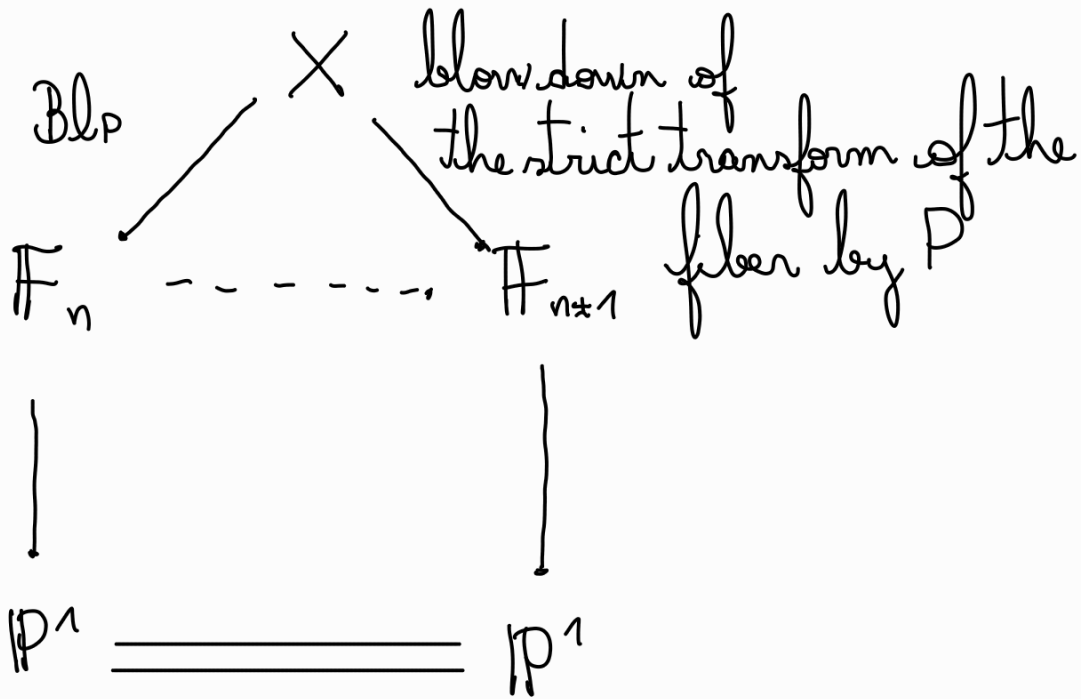 X blow down of
Bl_P the strict transform of the
fiber by P
𝔽_n 𝔽_{n±1}
ℙ^1 ℙ^1